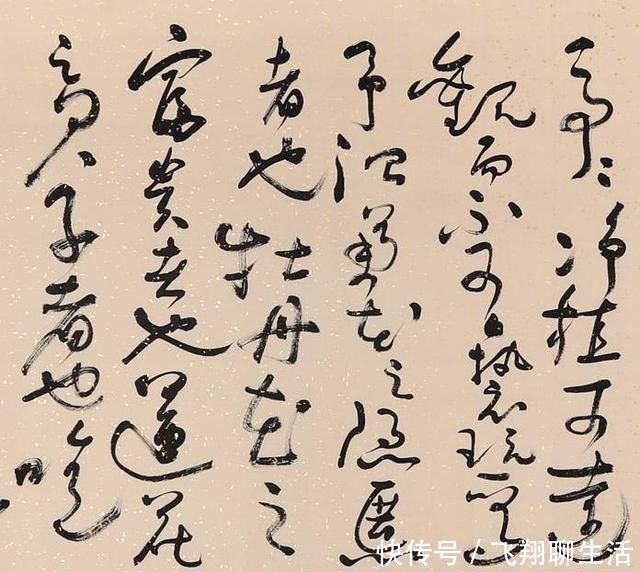 亭亭净植可遠
觀而不可褻玩焉
予谓菊花之隐逸
者也牡丹花之
富贵者也蓮花
之君子者也噫
快传号/飞翔聊生活